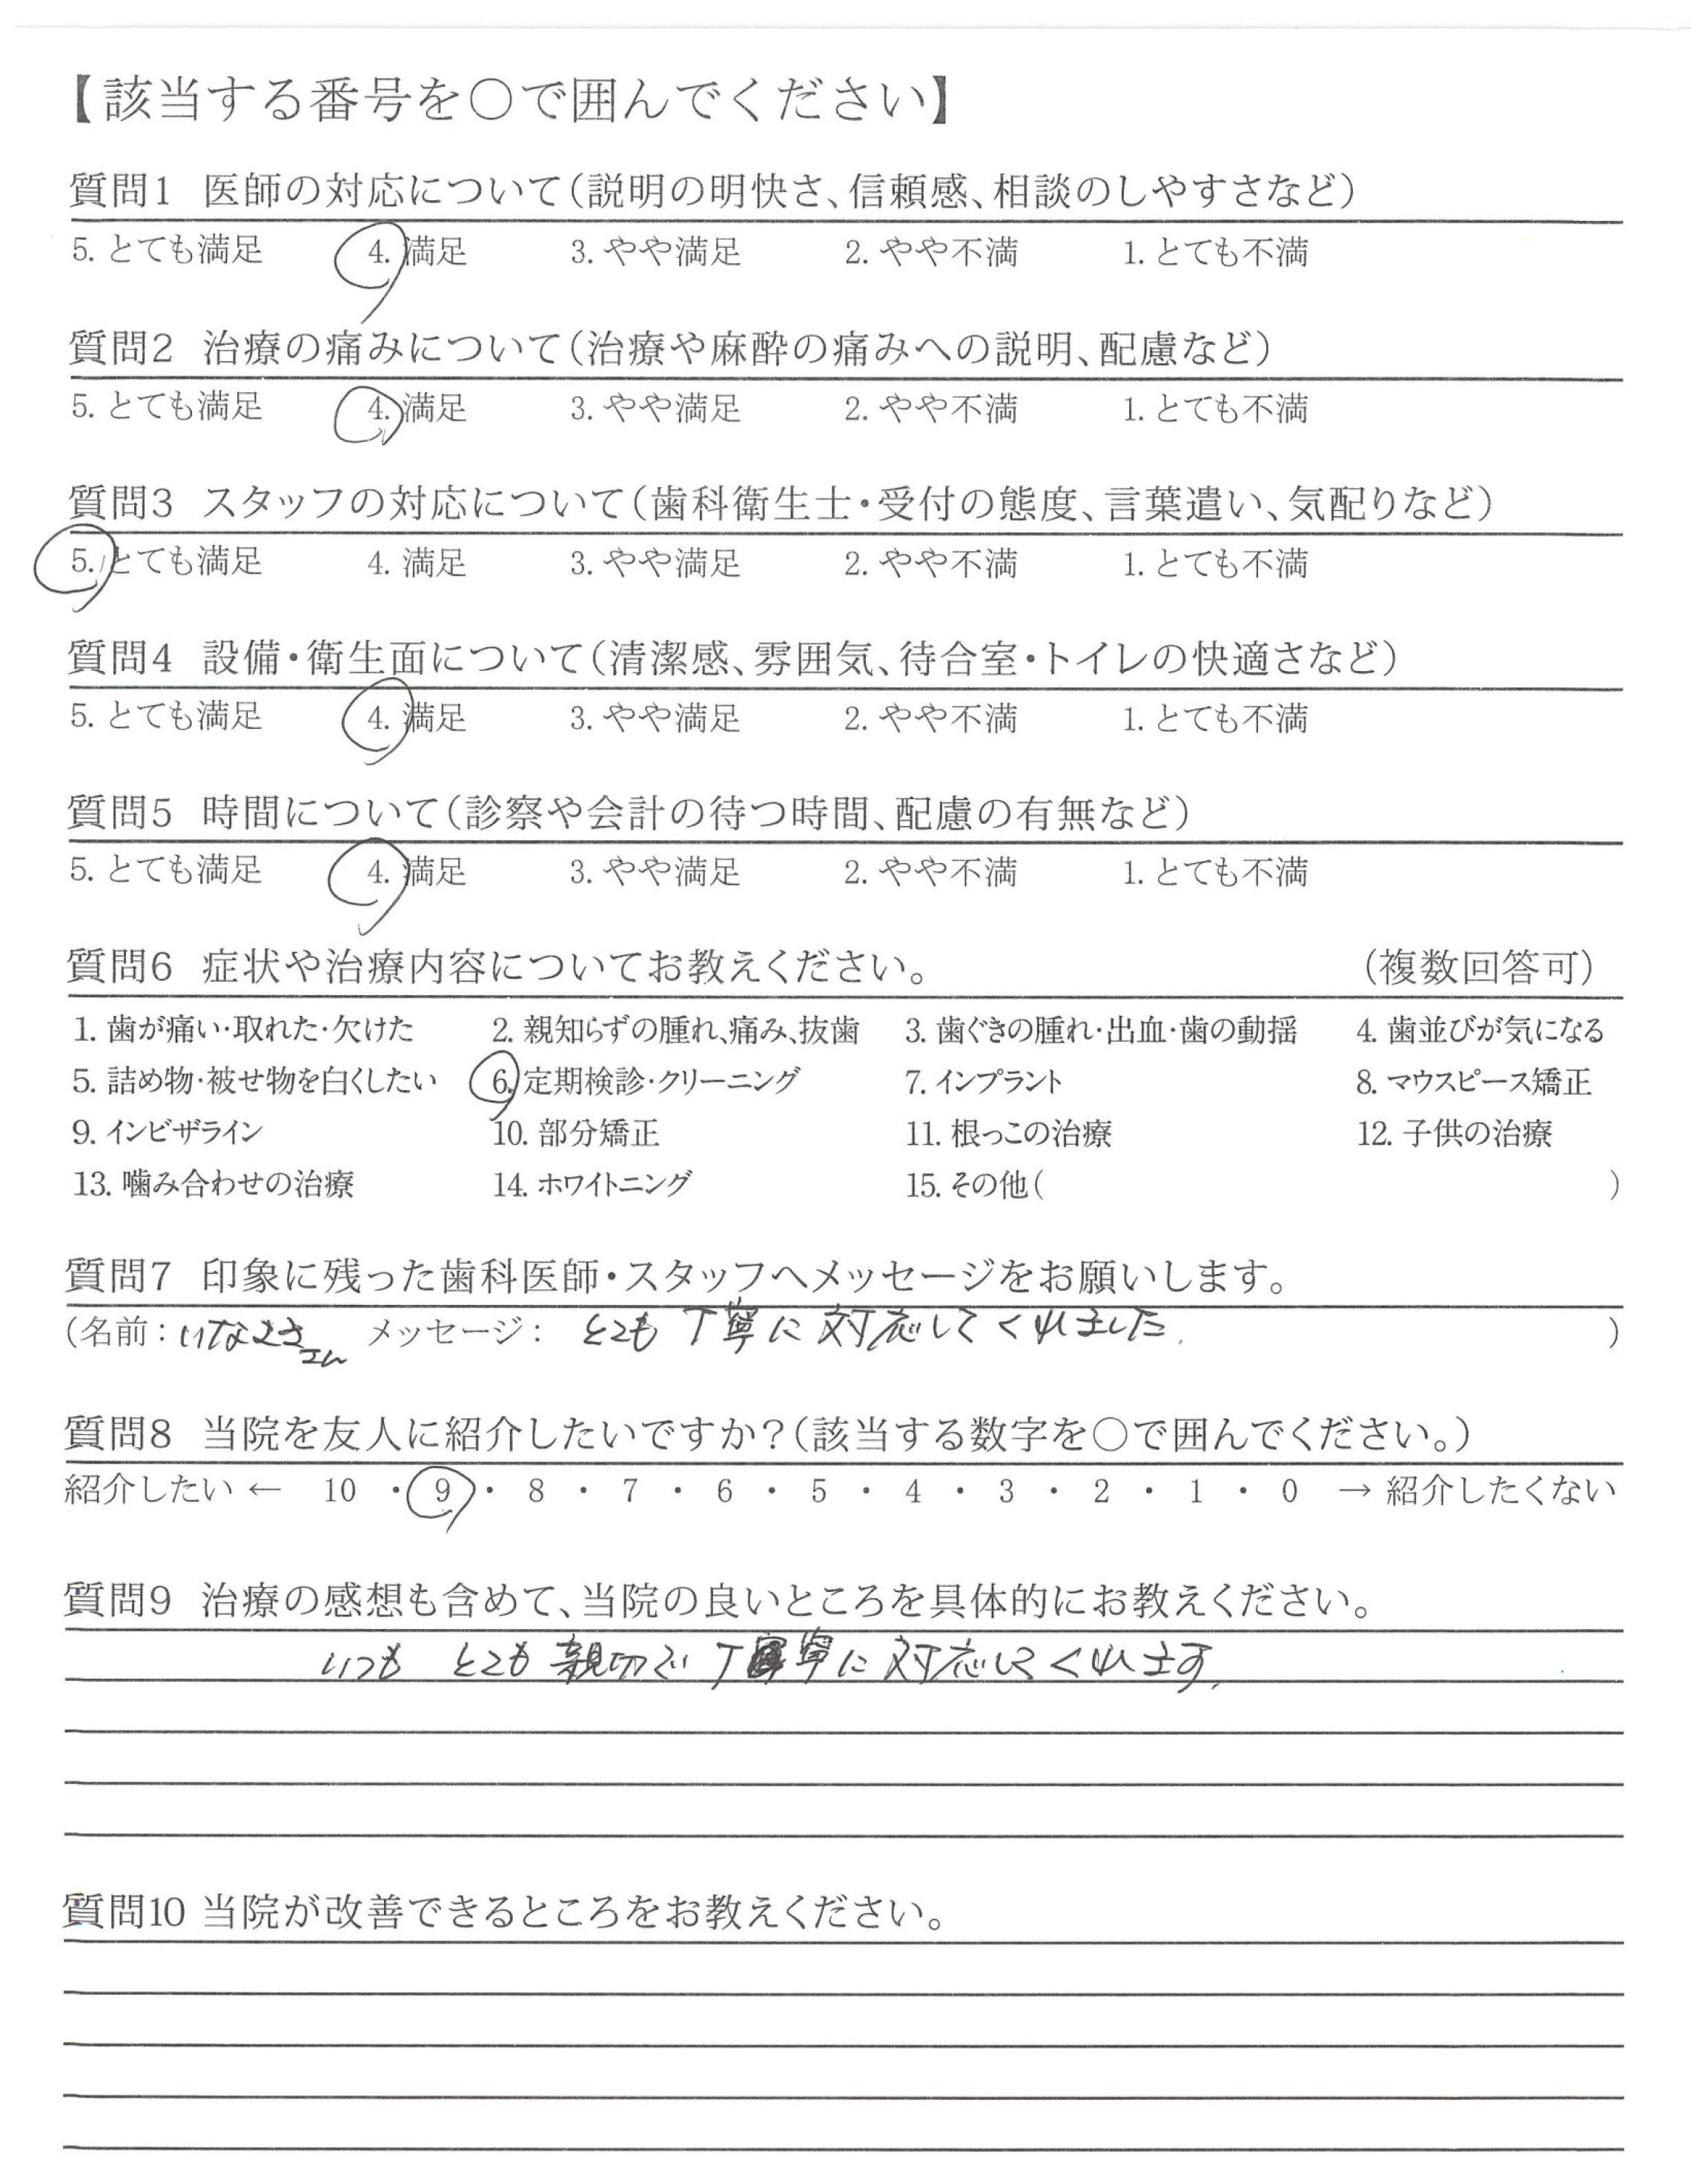 【該当する番号を〇で囲んでください】
質問1 医師の対応について(説明の明快さ、信頼感、相談のしやすさなど)
5. とても満足 4. 満足 3. やや満足 2. やや不満 1. とても不満
質問2 治療の痛みについて(治療や麻酔の痛みへの説明、配慮など)
5. とても満足 4. 満足 3. やや満足 2. やや不満 1. とても不満
質問3 スタッフの対応について(歯科衛生士・受付の態度、言葉遣い、気配りなど)
5. とても満足 4. 満足 3. やや満足 2. やや不満 1. とても不満
質問4 設備・衛生面について(清潔感、雰囲気、待合室・トイレの快適さなど)
5. とても満足 4. 満足 3. やや満足 2. やや不満 1. とても不満
質問5 時間について(診察や会計の待つ時間、配慮の有無など)
5. とても満足 4. 満足 3. やや満足 2. やや不満 1. とても不満
質問6 症状や治療内容についてお教えください。 (複数回答可)
1. 歯が痛い・取れた・欠けた 2. 親知らずの腫れ、痛み、抜歯 3. 歯ぐきの腫れ・出血・歯の動揺 4. 歯並びが気になる
5. 詰め物・被せ物を白くしたい 6. 定期検診・クリーニング 7. インプラント 8. マウスピース矯正
9. インビザライン 10. 部分矯正 11. 根っこの治療 12. 子供の治療
13. 噛み合わせの治療 14. ホワイトニング 15. その他( )
質問7 印象に残った歯科医師・スタッフへメッセージをお願いします。
(名前: メッセージ: とても丁寧に対応してくれました。 )
質問8 当院を友人に紹介したいですか?(該当する数字を〇で囲んでください。)
紹介したい ← 10 ・ 9 ・ 8 ・ 7 ・ 6 ・ 5 ・ 4 ・ 3 ・ 2 ・ 1 ・ 0 → 紹介したくない
質問9 治療の感想も含めて、当院の良いところを具体的にお教えください。
いつも とても親切で丁寧に対応してくれます。
質問10 当院が改善できるところをお教えください。